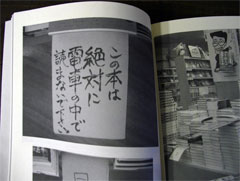 この本は
絶対に
電車の中で
読まないで下さい。